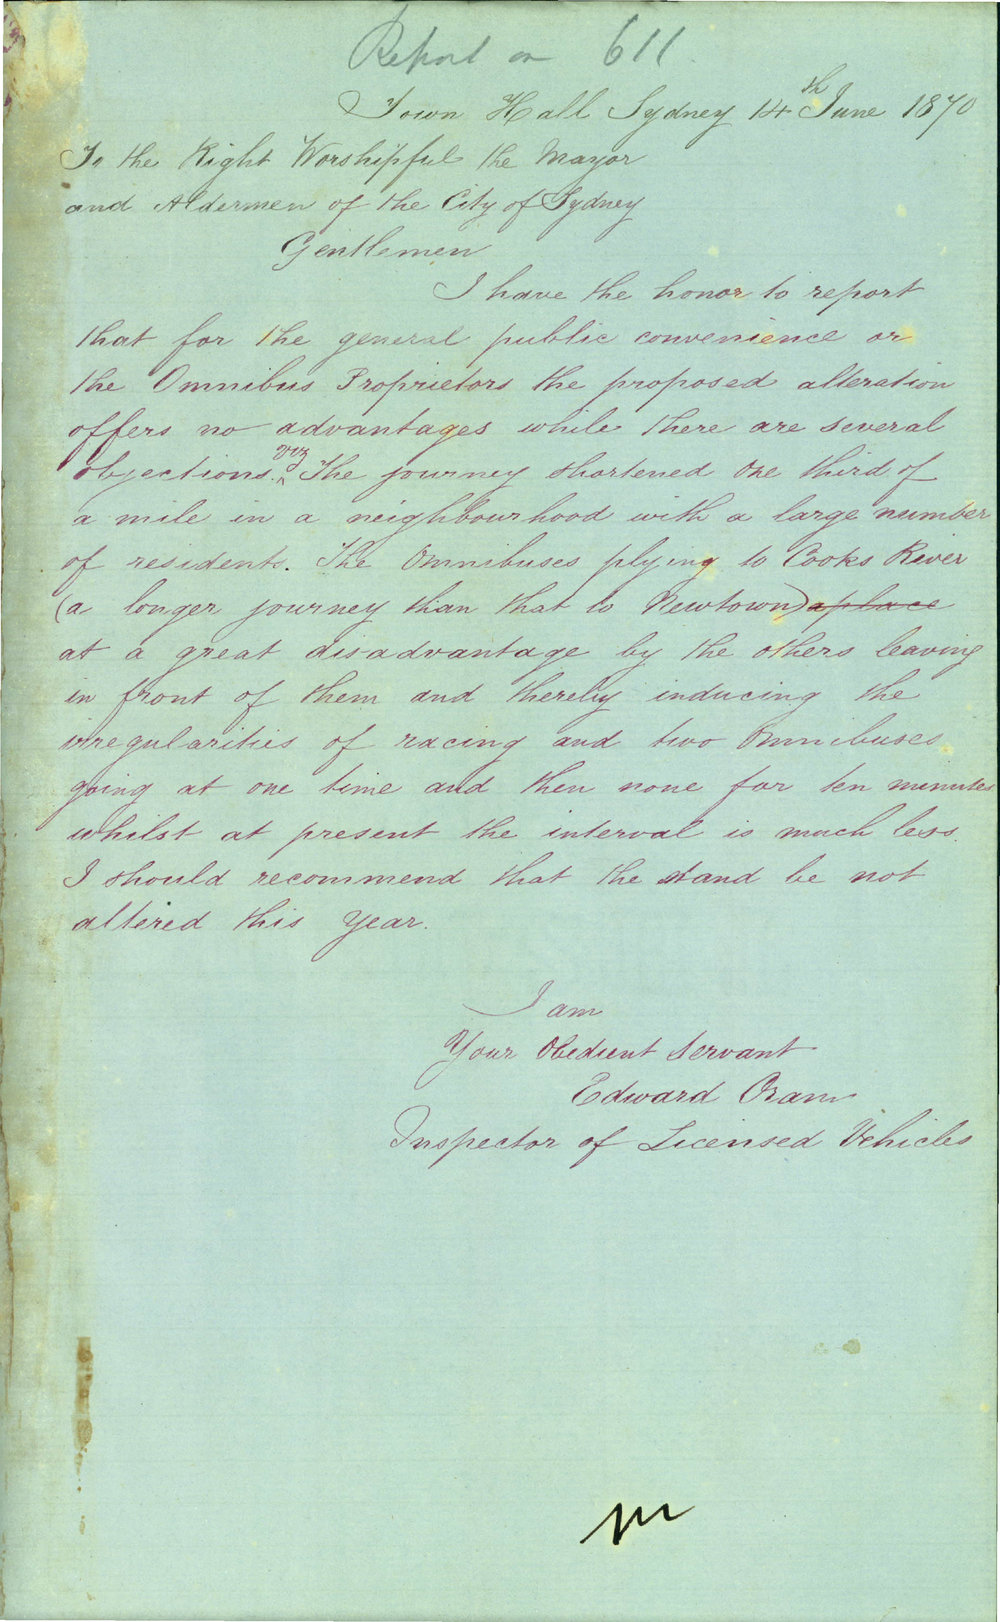 Report on 611
Town Hall Sydney 14th June 1870
To the Right Worshipful the Mayor
and Aldermen of the City of Sydney
Gentlemen
I have the honor to report
that for the general public convenience or
the Omnibus Proprietors the proposed alteration
offers no advantages while there are several
objections. viz The journey shortened one third of
a mile in a neighbourhood with a large number
of residents. The Omnibuses plying to Cooks River
(a longer journey than that to Newtown) a place
at a great disadvantage by the others leaving
in front of them and thereby inducing the
irregularities of racing and two Omnibuses
going at one time and then none for ten minutes
whilst at present the interval is much less.
I should recommend that the stand be not
altered this year.
I am
Your Obedient Servant
Edward Oram
Inspector of Licensed Vehicles